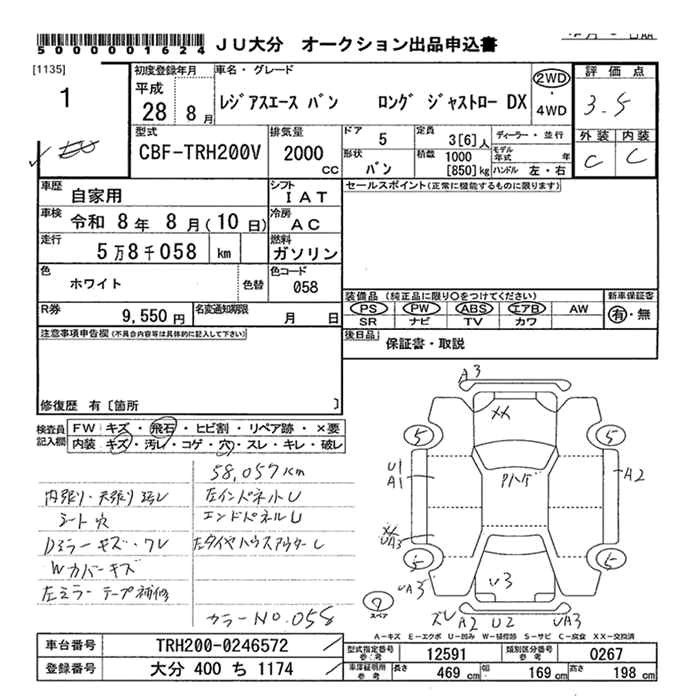 5000001624 JU大分 オークション出品申込書
[1135]
1
初度登録年月
平成
28 8月
車名・グレード
レジアスエース バン ロング ジャストロー DX
2WD
・
4WD
評価点
3.5
外装 内装
C C
型式
CBF-TRH200V
排気量
2000
cc
ドア 5
形状 バン
定員 3[6]人
積載 1000
[850]kg
ディーラー・並行
モデル年式 年
ハンドル 左・右
車歴 自家用
シフト IAT
車検 令和 8年 8月(10日)
冷房 AC
走行 5万8千058 km
燃料 ガソリン
色 ホワイト 色替
色コード 058
R券 9,550円
名変通知期限 月 日
セールスポイント(正常に機能するものに限ります)
装備品(純正品に限り○をつけてください)
PS PW ABS エアB AW
SR ナビ TV カワ
新車保証書
有・無
後日品 保証書・取説
注意事項申告欄(不具合内容等は具体的に記入して下さい)
修復歴 有〔箇所 〕
検査員記入欄
FW キズ・飛石・ヒビ割・リペア跡・×要
内装 キズ・汚レ・コゲ・穴・スレ・キレ・破レ
58,057km
内張り・天張り
シート穴
Dミラーキズ・ワレ
Wカバーキズ
左ミラー テープ補修
左インパネトU
エンドパネルU
カラーNo.058
A3
XX
5 5
U1
A1
A2
UA3
5 5
UA3
U3
7
スペア
ズレ A2 U2 UA3
A-キズ E-エクボ U-凹み W-補修跡 S-サビ C-腐食 XX-交換済
車台番号 TRH200-0246572
登録番号 大分 400 ち 1174
型式指定番号 参:考 12591
類別区分番号 参:考 0267
車庫証明用 参:考
長さ 469cm 幅 169cm 高さ 198cm